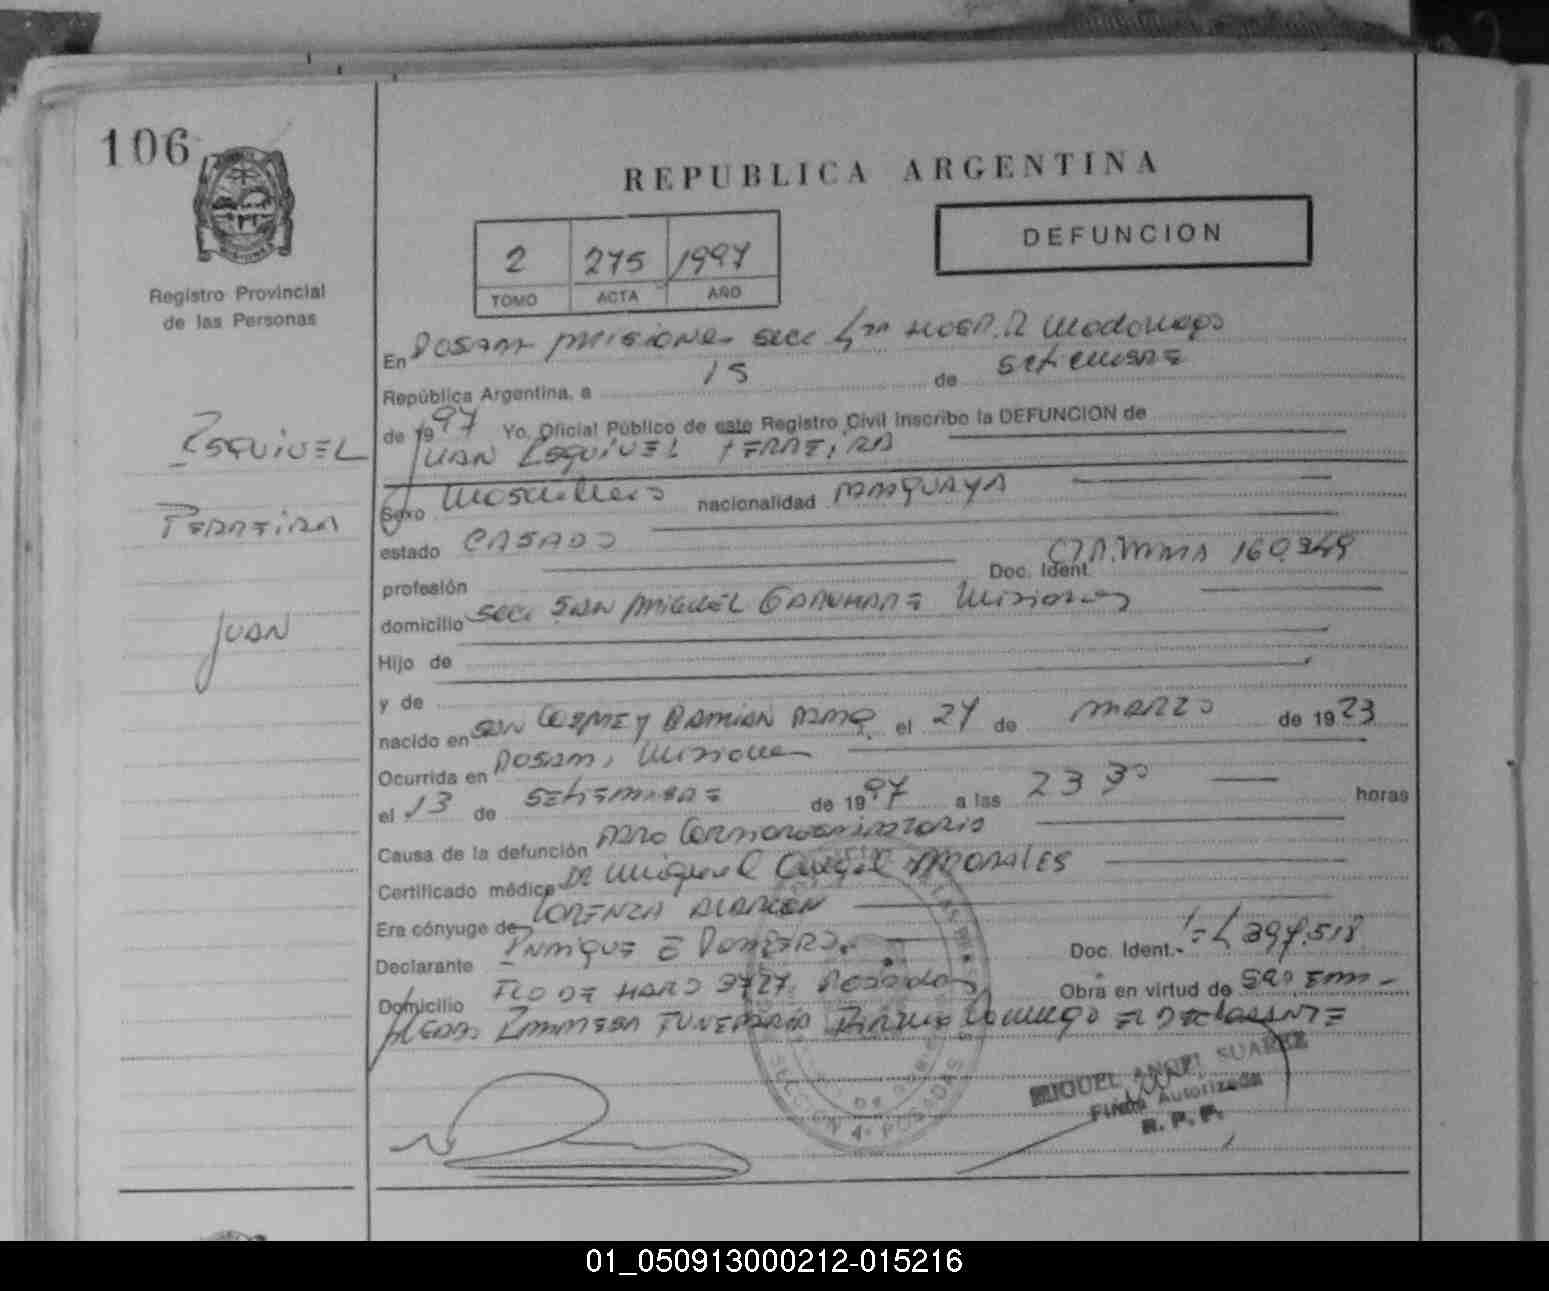 106
REPUBLICA ARGENTINA
DEFUNCION
2 275 1997
TOMO ACTA AÑO
Registro Provincial
de las Personas
En Posadas Misiones Secc 4ta Hosp. R Madariaga
República Argentina, a 15 de setiembre
de 1997 Yo, Oficial Público de este Registro Civil inscribo la DEFUNCION de
JUAN ESQUIVEL FERREIRA
ESQUIVEL
FERREIRA
JUAN
Sexo Masculino nacionalidad PARAGUAYA
estado CASADO
profesión Doc. Ident. 160.349
domicilio Secc SAN MIGUEL GARUHAPE Misiones
Hijo de
y de
nacido en SAN COSME Y DAMIAN el 24 de MARZO de 1923
Ocurrida en Posadas, Misiones
el 13 de SETIEMBRE de 1997 a las 23 30 horas
Causa de la defunción PARO Cardiorespiratorio
Certificado médico DR Miguel Angel MORALES
Era cónyuge de LORENZA ALARCON
Declarante ENRIQUE E Doc. Ident.
Domicilio FCO DE HARO 2727, Posadas Obra en virtud de
EMPRESA FUNERARIA EL DECLARANTE
SECCION 4ª POSADAS
MIGUEL ANGEL SUAREZ
Firma Autorizada
R. P. P.
01_050913000212-015216